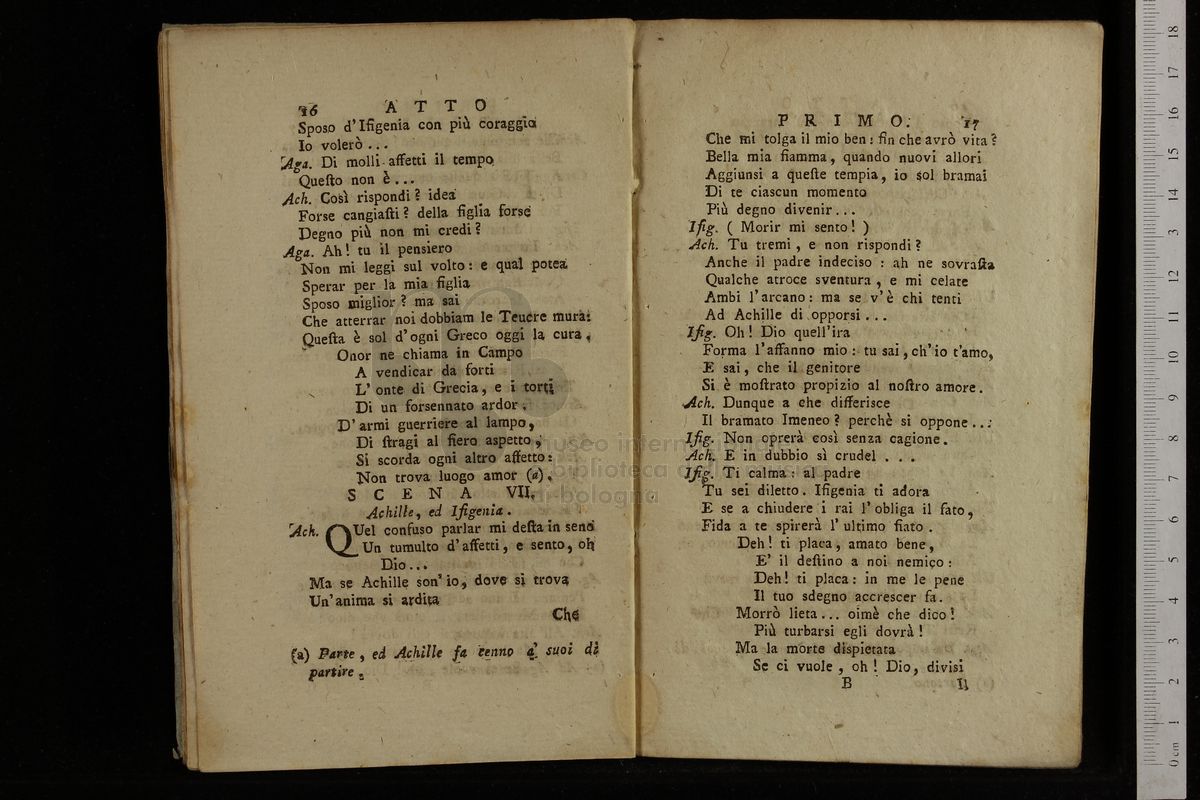 16 A T T O
Sposo d'Ifigenia con più coraggio
Io volerò ...
Aga. Di molli affetti il tempo
Queſto non è ...
Ach. Così rispondi? idea
Forse cangiaſti? della figlia forse
Degno più non mi credi?
Aga. Ah! tu il pensiero
Non mi leggi sul volto: e qual potea
Sperar per la mia figlia
Sposo miglior? ma sai
Che atterrar noi dobbiam le Teucre mura:
Queſta è sol d'ogni Greco oggi la cura.
Onor ne chiama in Campo
A vendicar da forti
L'onte di Grecia, e i torti
Di un forsennato ardor.
D'armi guerriere al lampo,
Di ſtragi al fiero aspetto,
Si scorda ogni altro affetto:
Non trova luogo amor (a).
S C E N A VII.
Achille, ed Ifigenia.
Ach. QUel confuso parlar mi deſta in seno
Un tumulto d'affetti, e sento, oh
Dio...
Ma se Achille son'io, dove si trova
Un'anima si ardita
Che
(a) Parte, ed Achille fa cenno a' suoi di
partire.
P R I M O. 17
Che mi tolga il mio ben: fin che avrò vita?
Bella mia fiamma, quando nuovi allori
Aggiunsi a queſte tempia, io sol bramai
Di te ciascun momento
Più degno divenir...
Ifig. ( Morir mi sento! )
Ach. Tu tremi, e non rispondi?
Anche il padre indeciso: ah ne sovraſta
Qualche atroce sventura, e mi celate
Ambi l'arcano: ma se v'è chi tenti
Ad Achille di opporsi...
Ifig. Oh! Dio quell'ira
Forma l'affanno mio: tu sai, ch'io t'amo,
E sai, che il genitore
Si è moſtrato propizio al noſtro amore.
Ach. Dunque a che differisce
Il bramato Imeneo? perchè si oppone...
Ifig. Non oprerà così senza cagione.
Ach. E in dubbio sì crudel . . .
Ifig. Ti calma: al padre
Tu sei diletto. Ifigenia ti adora
E se a chiudere i rai l'obliga il fato,
Fida a te spirerà l'ultimo fiato.
Deh! ti placa, amato bene,
E' il deſtino a noi nemico:
Deh! ti placa: in me le pene
Il tuo sdegno accrescer fa.
Morrò lieta... oimè che dico!
Più turbarsi egli dovrà!
Ma la morte dispietata
Se ci vuole, oh! Dio, divisi
B Il
museo internazionale
e biblioteca della musica
di bologna
0 cm 1 2 3 4 5 6 7 8 9 10 11 12 13 14 15 16 17 18